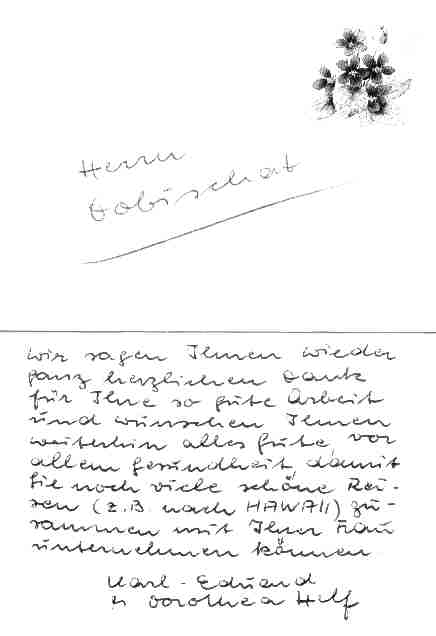 Herrn
Gobischat
wir sagen Ihnen wieder
ganz herzlichen Dank
für Ihre so gute Arbeit
und wünschen Ihnen
weiterhin alles gute, vor
allem gesundheit, damit
Sie noch viele schöne Rei-
sen (z.B. nach HAWAII) zu-
sammen mit Ihrer Frau
unternehmen können.
Karl-Eduard
u. Dorothea Hilf